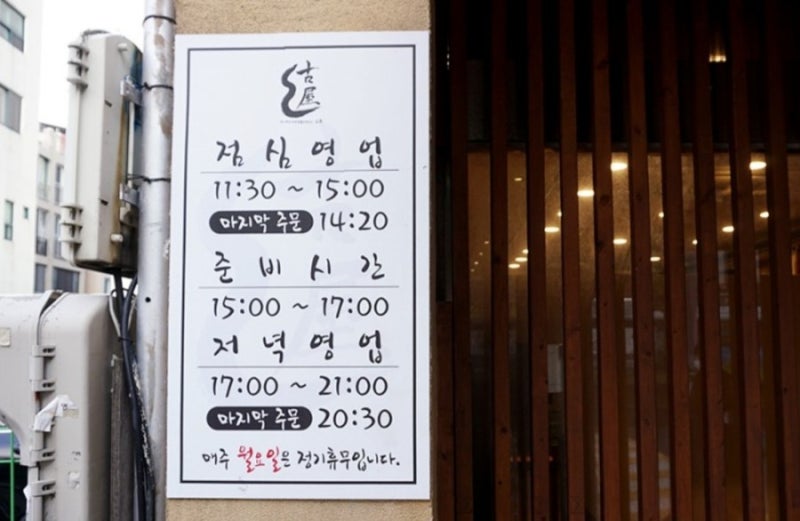 古屋
점심영업
11:30 ~ 15:00
마지막 주문 14:20
준비시간
15:00 ~ 17:00
저녁영업
17:00 ~ 21:00
마지막 주문 20:30
매주 월요일은 정기휴무입니다.